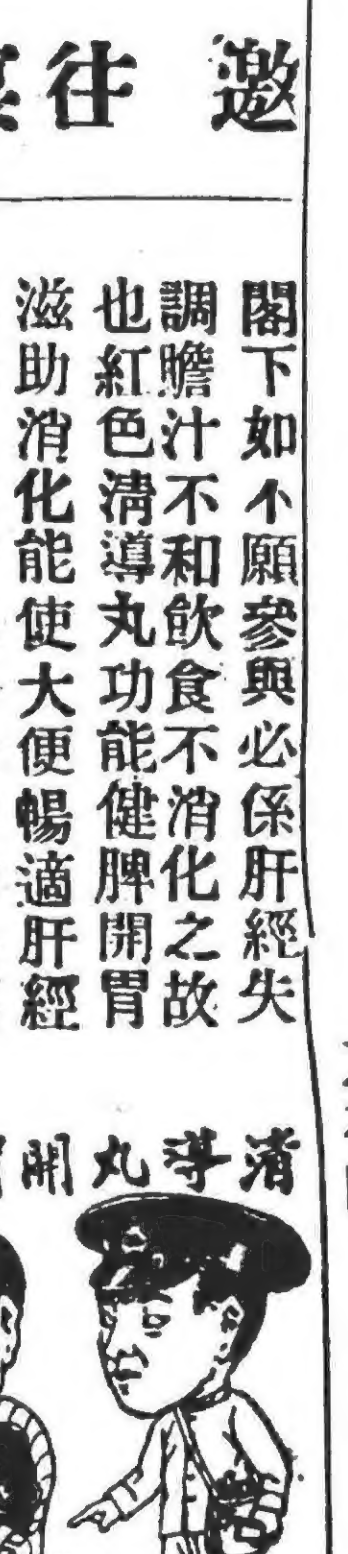 邀往
閣下如不願參與必係肝經失
調膽汁不和飲食不消化之故
也紅色清導丸功能健脾開胃
滋助消化能使大便暢適肝經
清導丸開